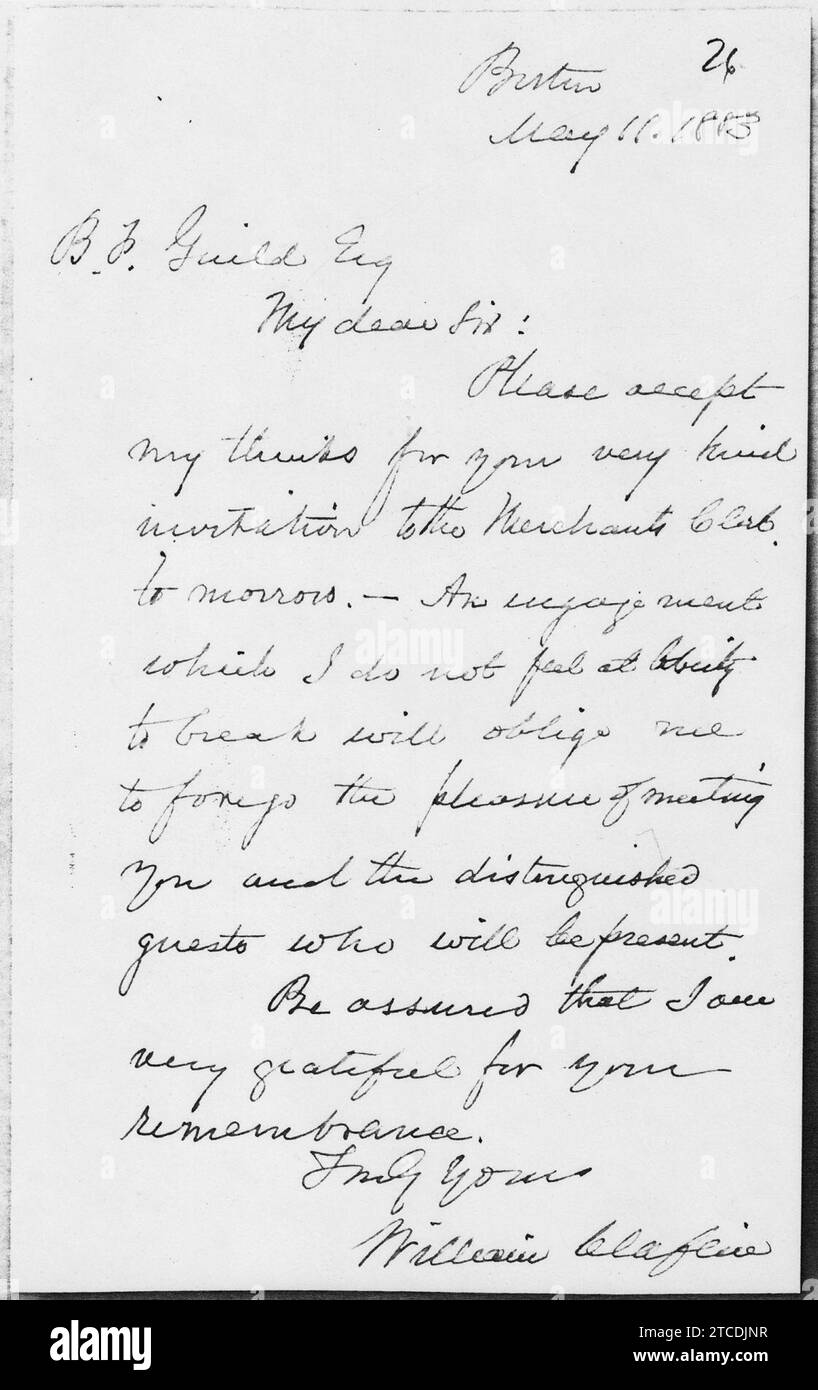 26
Boston
May 11. 1885
B. F. Guild Esq
My dear Sir:
Please accept
my thanks for your very kind
invitation to the Merchants Club.
to morrow. — An engagement
which I do not feel at liberty
to break will oblige me
to forego the pleasure of meeting
you and the distinguished
guests who will be present.
Be assured that I am
very grateful for your
remembrance.
Truly Yours
William Claflin
alamy
Image ID: 2TCDJNR
www.alamy.com